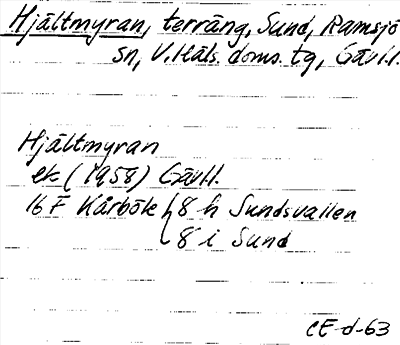 Hjältmyran, terräng, Sund, Ramsjö
sn, V. Häls. doms. tg, Gävl.l.
Hjältmyran
ek (1958) Gävl.l.
16 F Kårböle { 8 h Sundsvallen
8 i Sund
CE-d-63